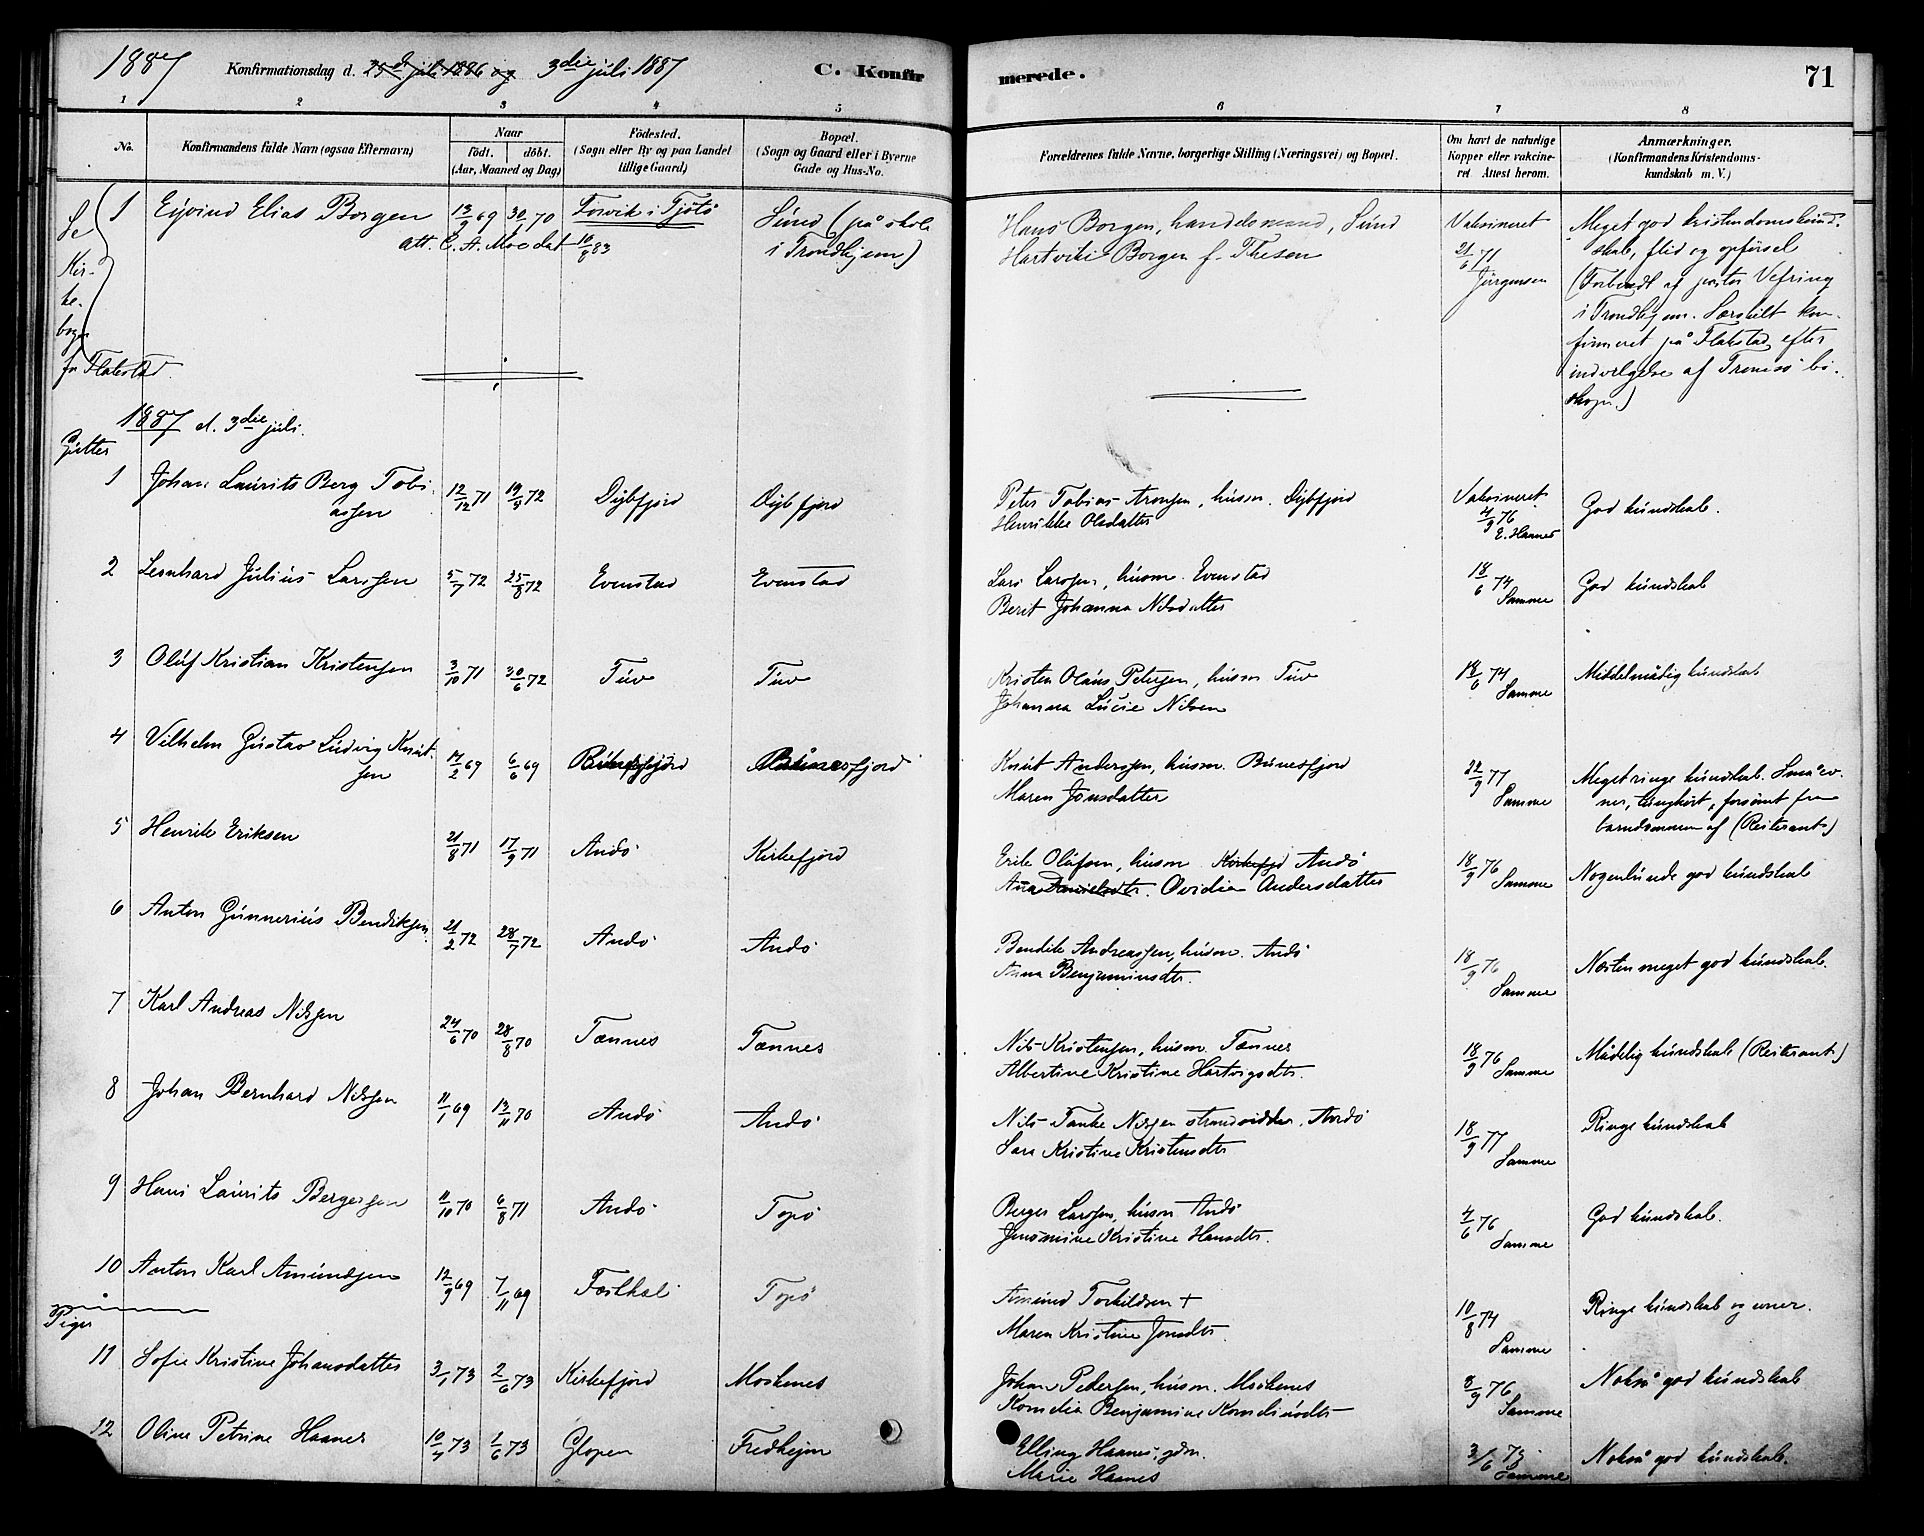 1887 Konfirmationsdag d. 25de juli 1886 og 3die juli 1887 C. Konfir
merede. 71
1 2 3 4 5
6 7 8
No. Konfirmandens fulde Navn (ogsaa Efternavn)
Naar
födt. döbt.
(Aar, Maaned og Dag)
Födested.
(Sogn eller By og paa Landet
tillige Gaard)
Bopæl.
(Sogn og Gaard eller i Byerne
Gade og Hus-No.
Forældrenes fulde Navne, borgerlige Stilling (Næringsvei) og Bopæl.
Om havt de naturlige
Kopper eller vakcine-
ret Attest herom.
Anmærkninger.
(Konfirmandens Kristendoms-
kundskab m. V.)
Se
Kir-
ke-
bogen
for Flakstad.
1 Eyvind Elias Borgen 13/9 69 30/ 70 Forvik i Tjötö Sund (på skole
i Trondhjem)
att. C. A. Moe dat 16/8 83
Hans Borgen, handelsmand, Sund
Hartvike Borgen f. Thesen
Vaksineret
21/6 71
Jürgensen
Meget god kristendomskund-
skab, flid og opförsel
(Forberedt af pastor Vefring
i Trondhjem. Særskilt kon-
firmeret på Flakstad efter
indvilgelse af Tromsö bi-
skop.)
1887 d. 3die juli.
Gutter
1 Johan Laurits Berg Tobi-
assen 12/12 71 19/8 72 Dybfjord Dybfjord
Peter Tobias Aronsen, husm. Dybfjord
Henrikke Olsdatter
Vaksineret
4/9 76
E. Haanes
God kundskab.
2 Leonhard Julius Larssen 5/7 72 25/8 72 Evenstad Evenstad
Lars Larssen, husm. Evenstad
Berit Johanna Nilsdatter
18/6 74
Samme
God kundskab
3 Oluf Kristian Kristensen 3/10 71 30/6 72 Tuv Tuv
Kristen Olaus Petersen, husm Tuv
Johanna Lucie Nilsen
18/6 74
Samme
Middelmådig kundskab
4 Vilhelm Gustav Ludvig Knut-
sen 17/2 69 6/6 69 Bunesfjord Bunesfjord
Knut Anderssen, husm. Bunesfjord
Maren Jonsdatter
22/9 77
Samme
Meget ringe kundskab. Små ev-
ner, tunghört, forsömt fra
barndommen af (Reiterant)
5 Henrik Eriksen 21/8 71 17/9 71 Andö Kirkefjord
Erik Olufsen, husm Kirkefjd Andö
Ana Danielsdtr. Ovidia Andersdatter
18/9 76
Samme
Nogenlunde god kundskab
6 Anton Gunnerius Bendiksen. 21/2 72 28/7 72 Andö Andö
Bendik Andreassen, husm. Andö
Anna Benjaminsdtr.
18/9 76
Samme
Næsten meget god kundskab.
7 Karl Andreas Nilssen 24/6 70 28/8 70 Tennes Tennes
Nils Kristensen, husm. Tennes
Albertine Kristine Hartvigsdtr.
18/9 76
Samme
Mådelig kundskab (Reiterant)
8 Johan Bernhard Nilssen 11/1 69 13/11 70 Andö Andö
Nils Tanke Nilssen strandsidder, Andö
Sara Kristine Kristensdtr
18/9 77
Samme
Ringe kundskab
9 Hans Laurits Bergersen 11/10 70 6/8 71 Andö Topö
Berger Larssen, husm Andö
Jensmine Kristine Hansdtr.
4/6 76
Samme
God kundskab.
10 Anton Karl Amundsen 12/9 69 7/11 69 Topö
Amund Torkildsen +
Maren Kristine Jonsdtr.
10/8 74
Samme
Ringe kundskab og evner.
Piger
11 Sofie Kristine Johansdatter 3/1 73 2/6 73 Kirkefjord Moskenes
Johan Pedersen, husm. Moskenes
Kornelia Benjamine Korneliusdtr
8/9 76
Samme
Nokså god kundskab
12 Oline Petrine Haanes 10/4 73 1/6 73 Glopen Fredheim
Elling Haanes, gdm.
Marie Haanes
3/6 75
Samme
Nokså god kundskab.